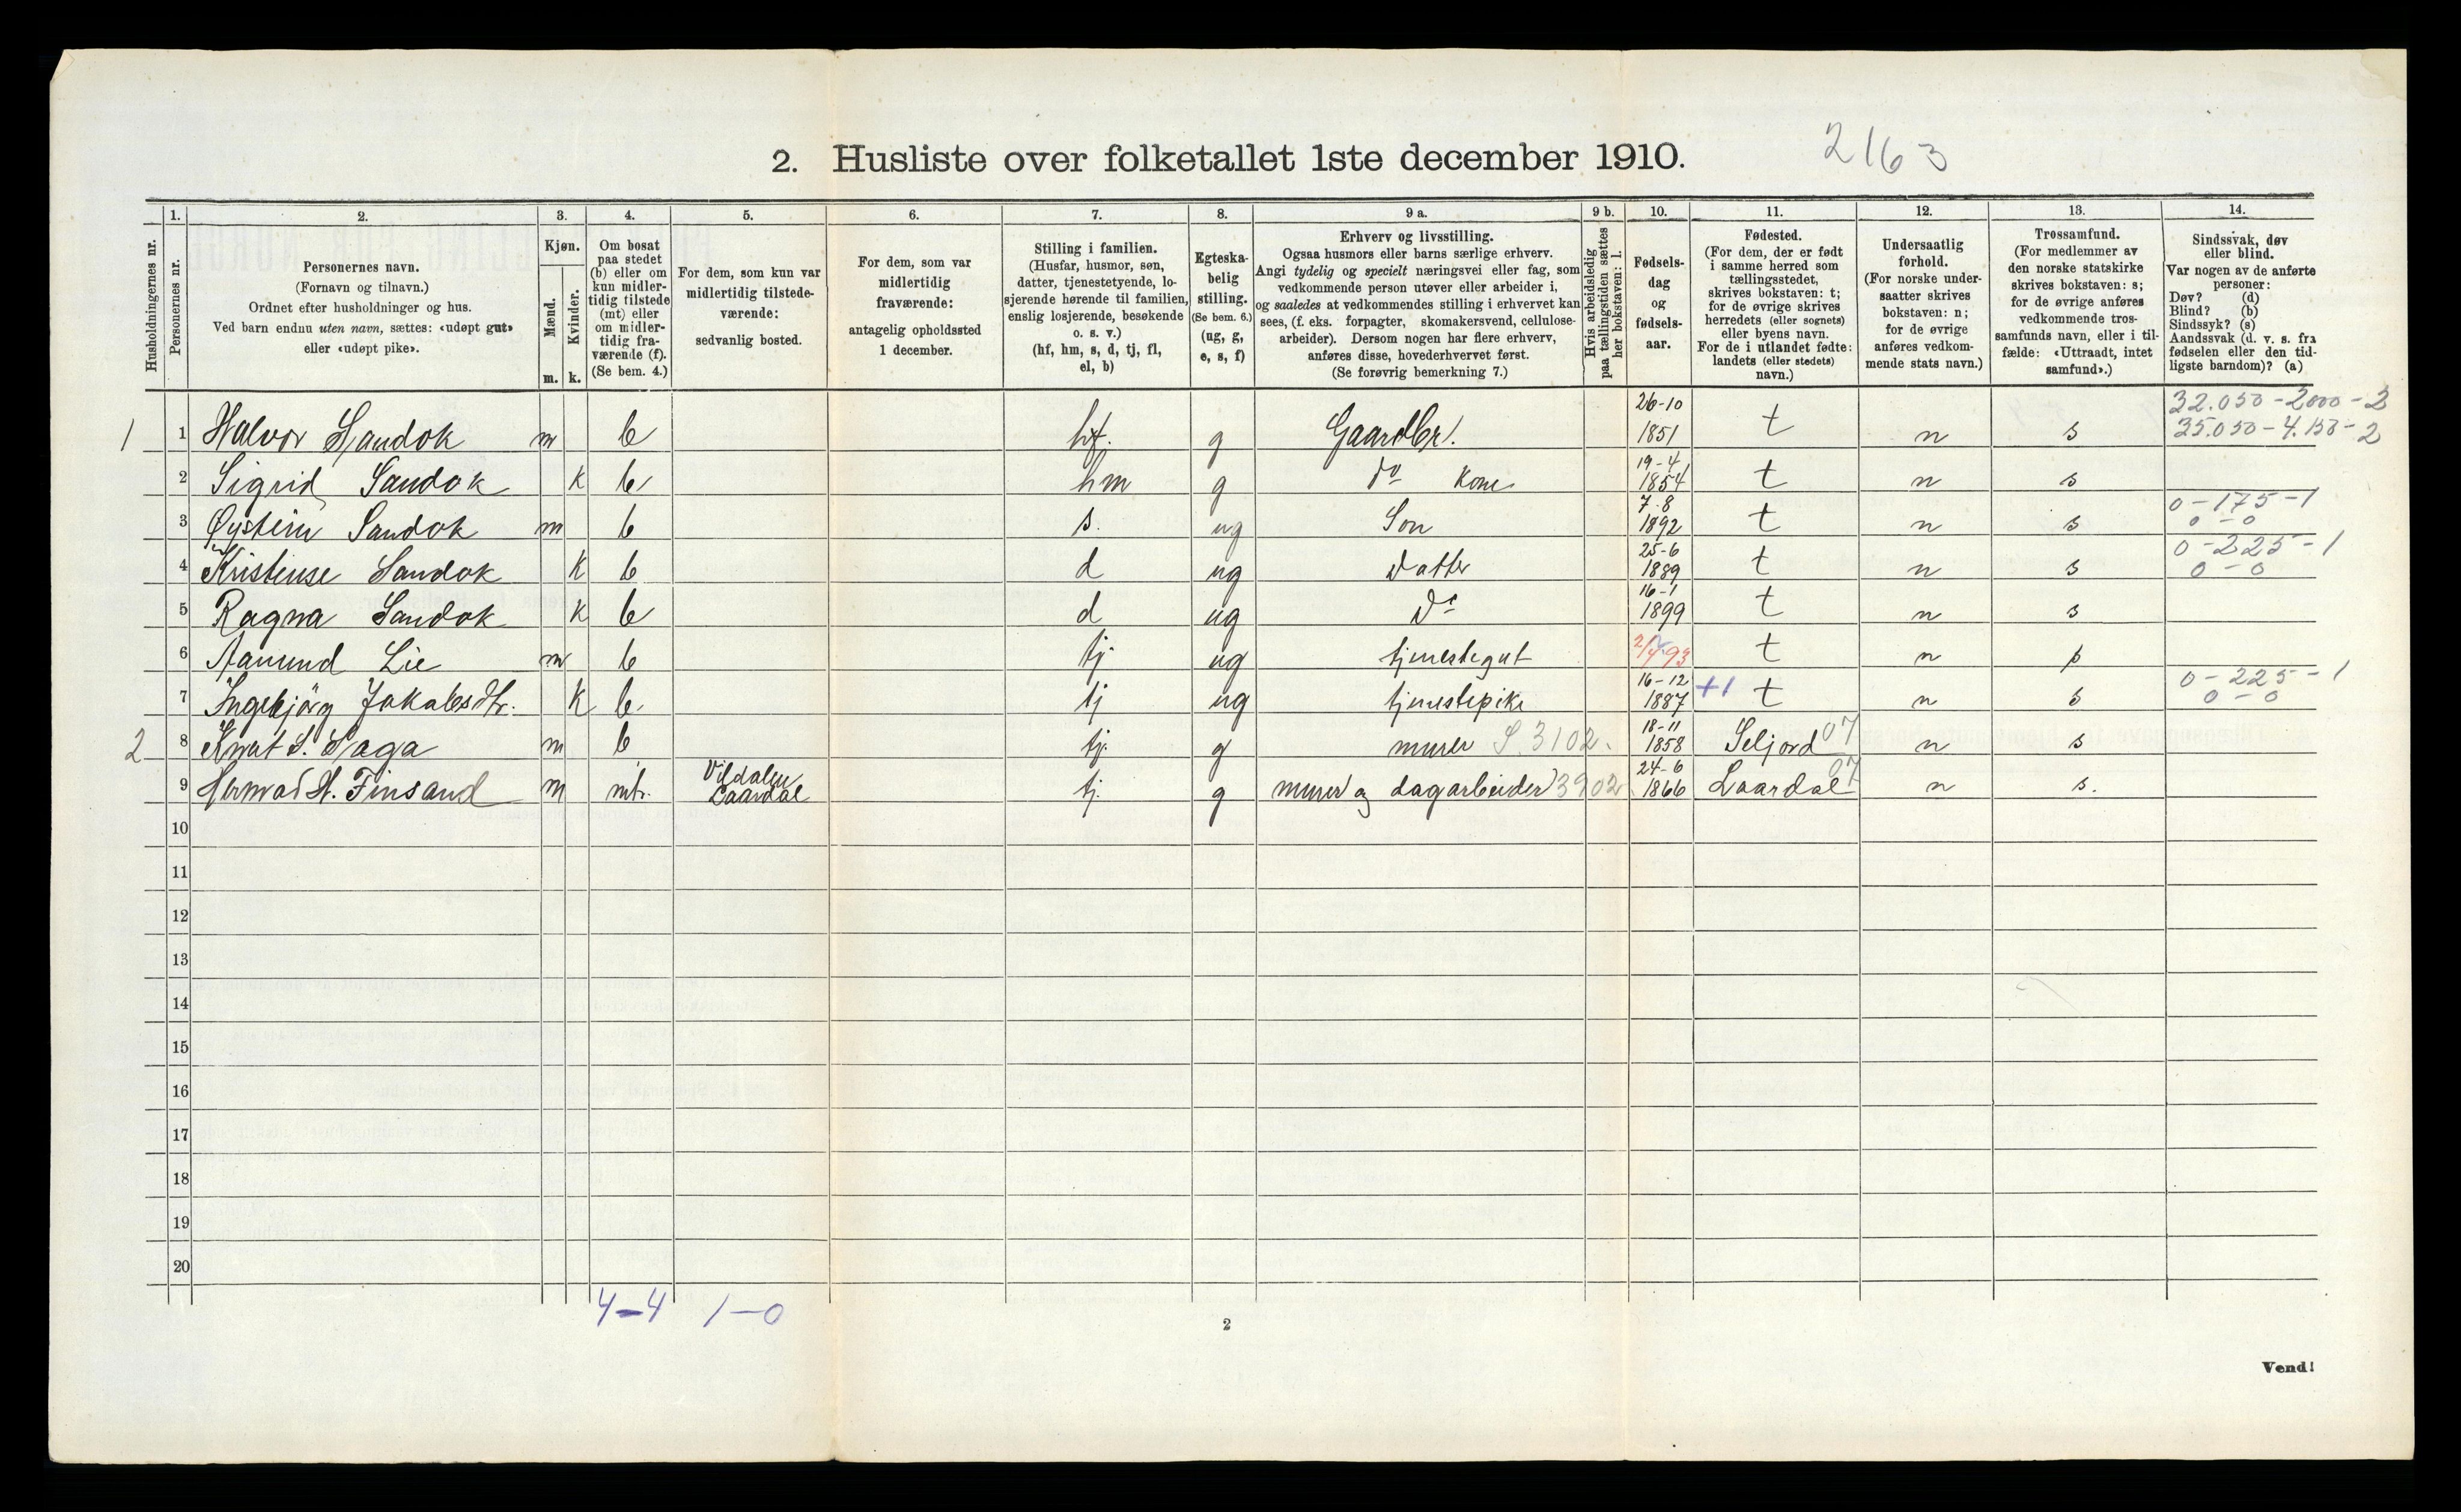 2. Husliste over folketallet 1ste december 1910.
2163
1. 2. 3. 4. 5. 6. 7. 8. 9 a. 9 b. 10. 11. 12. 13. 14.
Husholdningernes nr.
Personernes nr.
Personernes navn.
(Fornavn og tilnavn.)
Ordnet efter husholdninger og hus.
Ved barn endnu uten navn, sættes: «udøpt gut»
eller «udøpt pike».
Kjøn.
Mænd.
Kvinder.
m. k.
Om bosat
paa stedet
(b) eller om
kun midler-
tidig tilstede
(mt) eller
om midler-
tidig fra-
værende (f).
(Se bem. 4.)
For dem, som kun var
midlertidig tilstede-
værende:
sedvanlig bosted.
For dem, som var
midlertidig
fraværende:
antagelig opholdssted
1 december.
Stilling i familien.
(Husfar, husmor, søn,
datter, tjenestetyende, lo-
sjerende hørende til familien,
enslig losjerende, besøkende
o. s. v.)
(hf, hm, s, d, tj, fl,
el, b)
Egteska-
belig
stilling.
(Se bem. 6.)
(ug, g,
e, s, f)
Erhverv og livsstilling.
Ogsaa husmors eller barns særlige erhverv.
Angi tydelig og specielt næringsvei eller fag, som
vedkommende person utøver eller arbeider i,
og saaledes at vedkommendes stilling i erhvervet kan
sees, (f. eks. forpagter, skomakersvend, cellulose-
arbeider). Dersom nogen har flere erhverv,
anføres disse, hovederhvervet først.
(Se forøvrig bemerkning 7.)
Hvis arbeidsledig
paa tællingstiden sættes
her bokstaven: l.
Fødsels-
dag
og
fødsels-
aar.
Fødested.
(For dem, der er født
i samme herred som
tællingsstedet,
skrives bokstaven: t;
for de øvrige skrives
herredets (eller sognets)
eller byens navn.
For de i utlandet fødte:
landets (eller stedets)
navn.)
Undersaatlig
forhold.
(For norske under-
saatter skrives
bokstaven: n;
for de øvrige
anføres vedkom-
mende stats navn.)
Trossamfund.
(For medlemmer av
den norske statskirke
skrives bokstaven: s;
for de øvrige anføres
vedkommende tros-
samfunds navn, eller i til-
fælde: «Uttraadt, intet
samfund».)
Sindssvak, døv
eller blind.
Var nogen av de anførte
personer:
Døv? (d)
Blind? (b)
Sindssyk? (s)
Aandssvak (d. v. s. fra
fødselen eller den tid-
ligste barndom)? (a)
32.050-2000-3
35.050-4.150-2
1 1 Halvor Sandok m b hf. g Gaardbr. 26-10 1851 t n s
2 Sigrid Sandok k b hm g do kone 19-4 1854 t n s
3 Øystein Sandok m b s. ug Son 7-8 1892 t n s 0-175-1 0-0
4 Kristense Sandok k b d ug Datter 25-6 1889 t n s 0-225-1 0-0
5 Ragna Sandok k b d ug Do 16-1 1899 t n s
6 Aamund Lie m b tj ug tjenestegut t n s
7 Ingebjörg Jakobsdtr. k b tj ug tjenestepike 16-12 1887 +1 t n s 0-225-1 0-0
2 8 Knut S. Haga m b tj. g murer S. 3102. 18-11 1858 Seljord 07 n s
9 H. Finsand m mt. Vildalen Laardal tj. g murer og dagarbeider 3902 24-6 1866 Laardal 07 n s.
10
11
12
13
14
15
16
17
18
19
20
4-4 1-0
2
Vend!